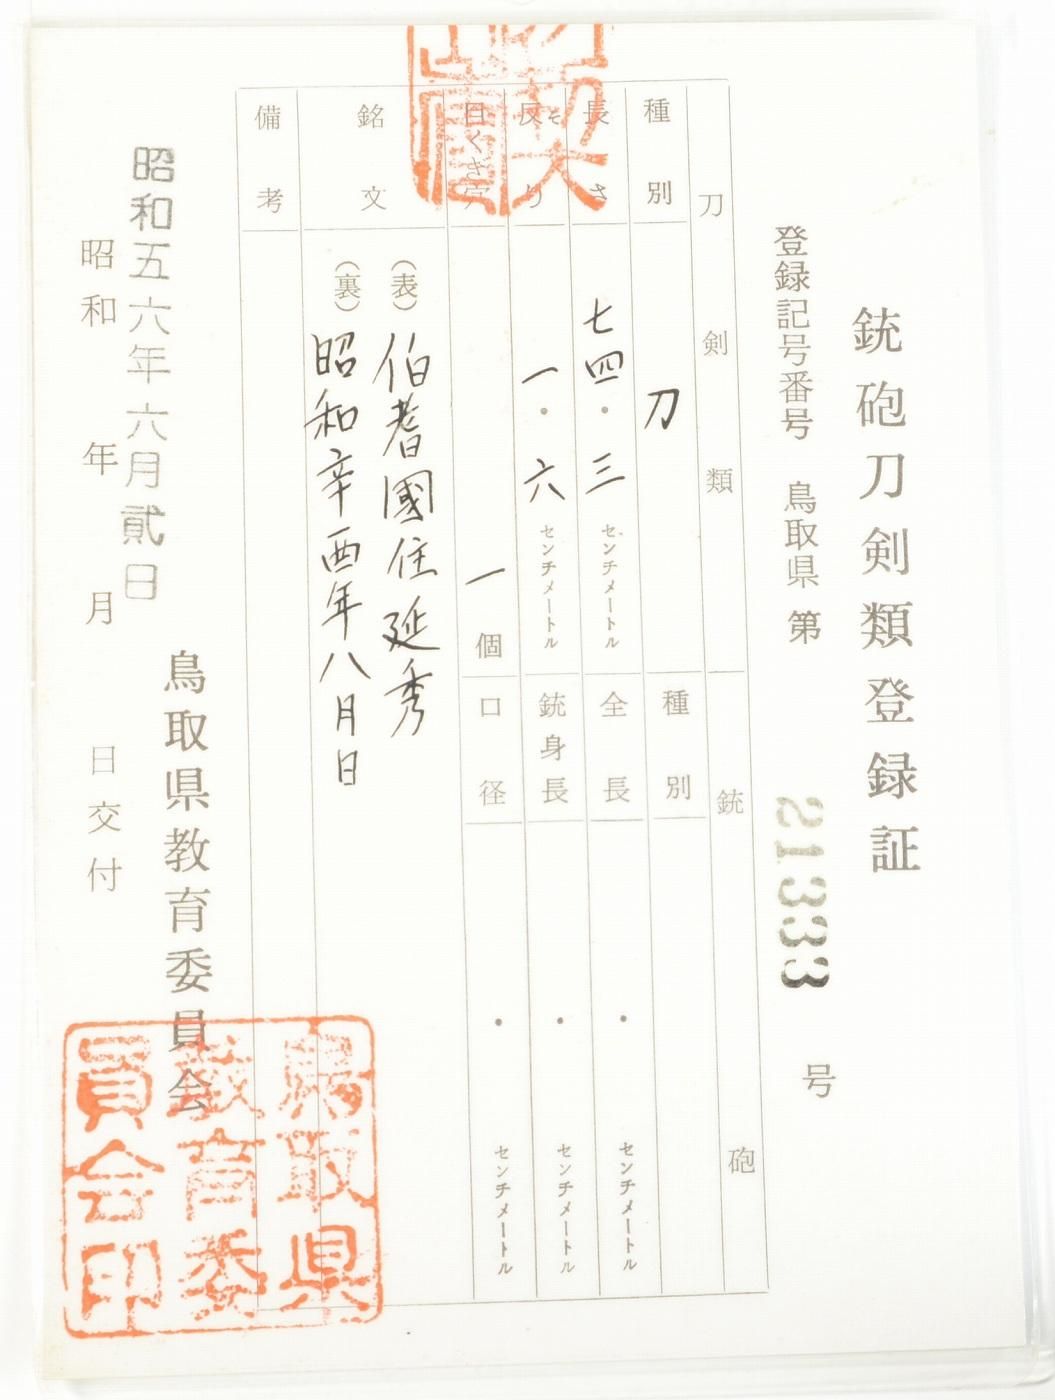 銃砲刀剣類登録証
登録記号番号 鳥取県 第 21333 号
刀剣類
銃砲
種別 刀
長さ 七四・三 センチメートル
反り そ 一・六 センチメートル
目くぎ穴 一 個
銘文 (表) 伯耆國住延秀
(裏) 昭和辛酉年八月日
備考
種別
全長 ・ センチメートル
銃身長 ・ センチメートル
口径 ・ センチメートル
鳥取県教育委員会
昭和五六年六月貳日
昭和 年 月 日交付
鳥取県
教育委
員会印
契